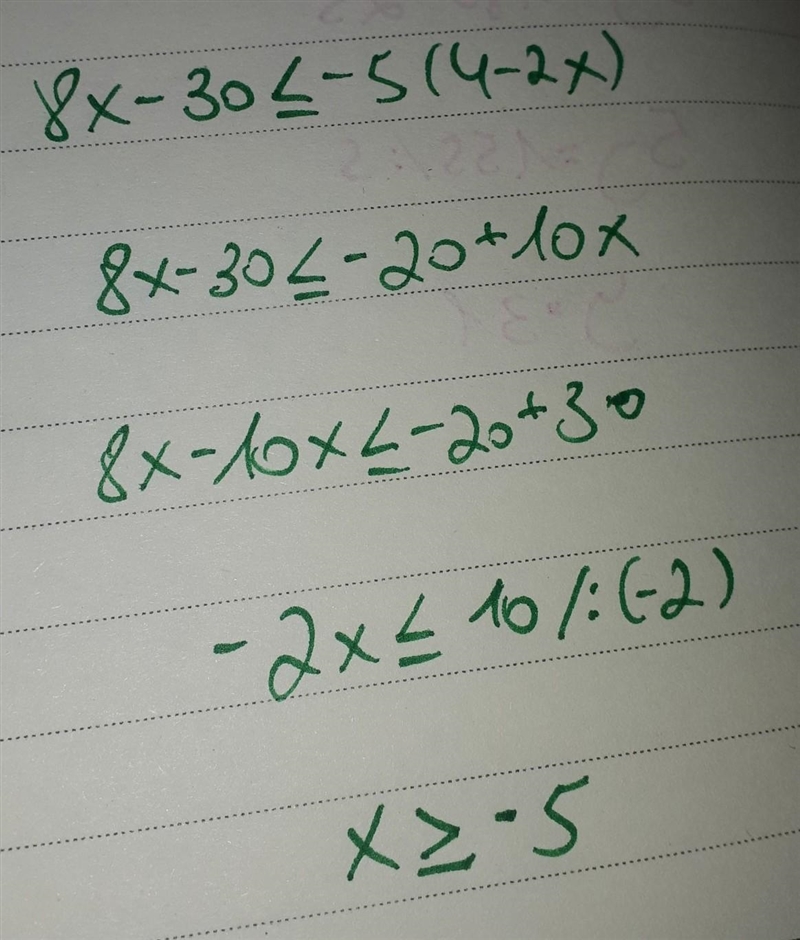 8x-30≤-5(4-2x)
8x-30≤-20+10x
8x-10x≤-20+30
-2x≤10/:(-2)
x≥-5